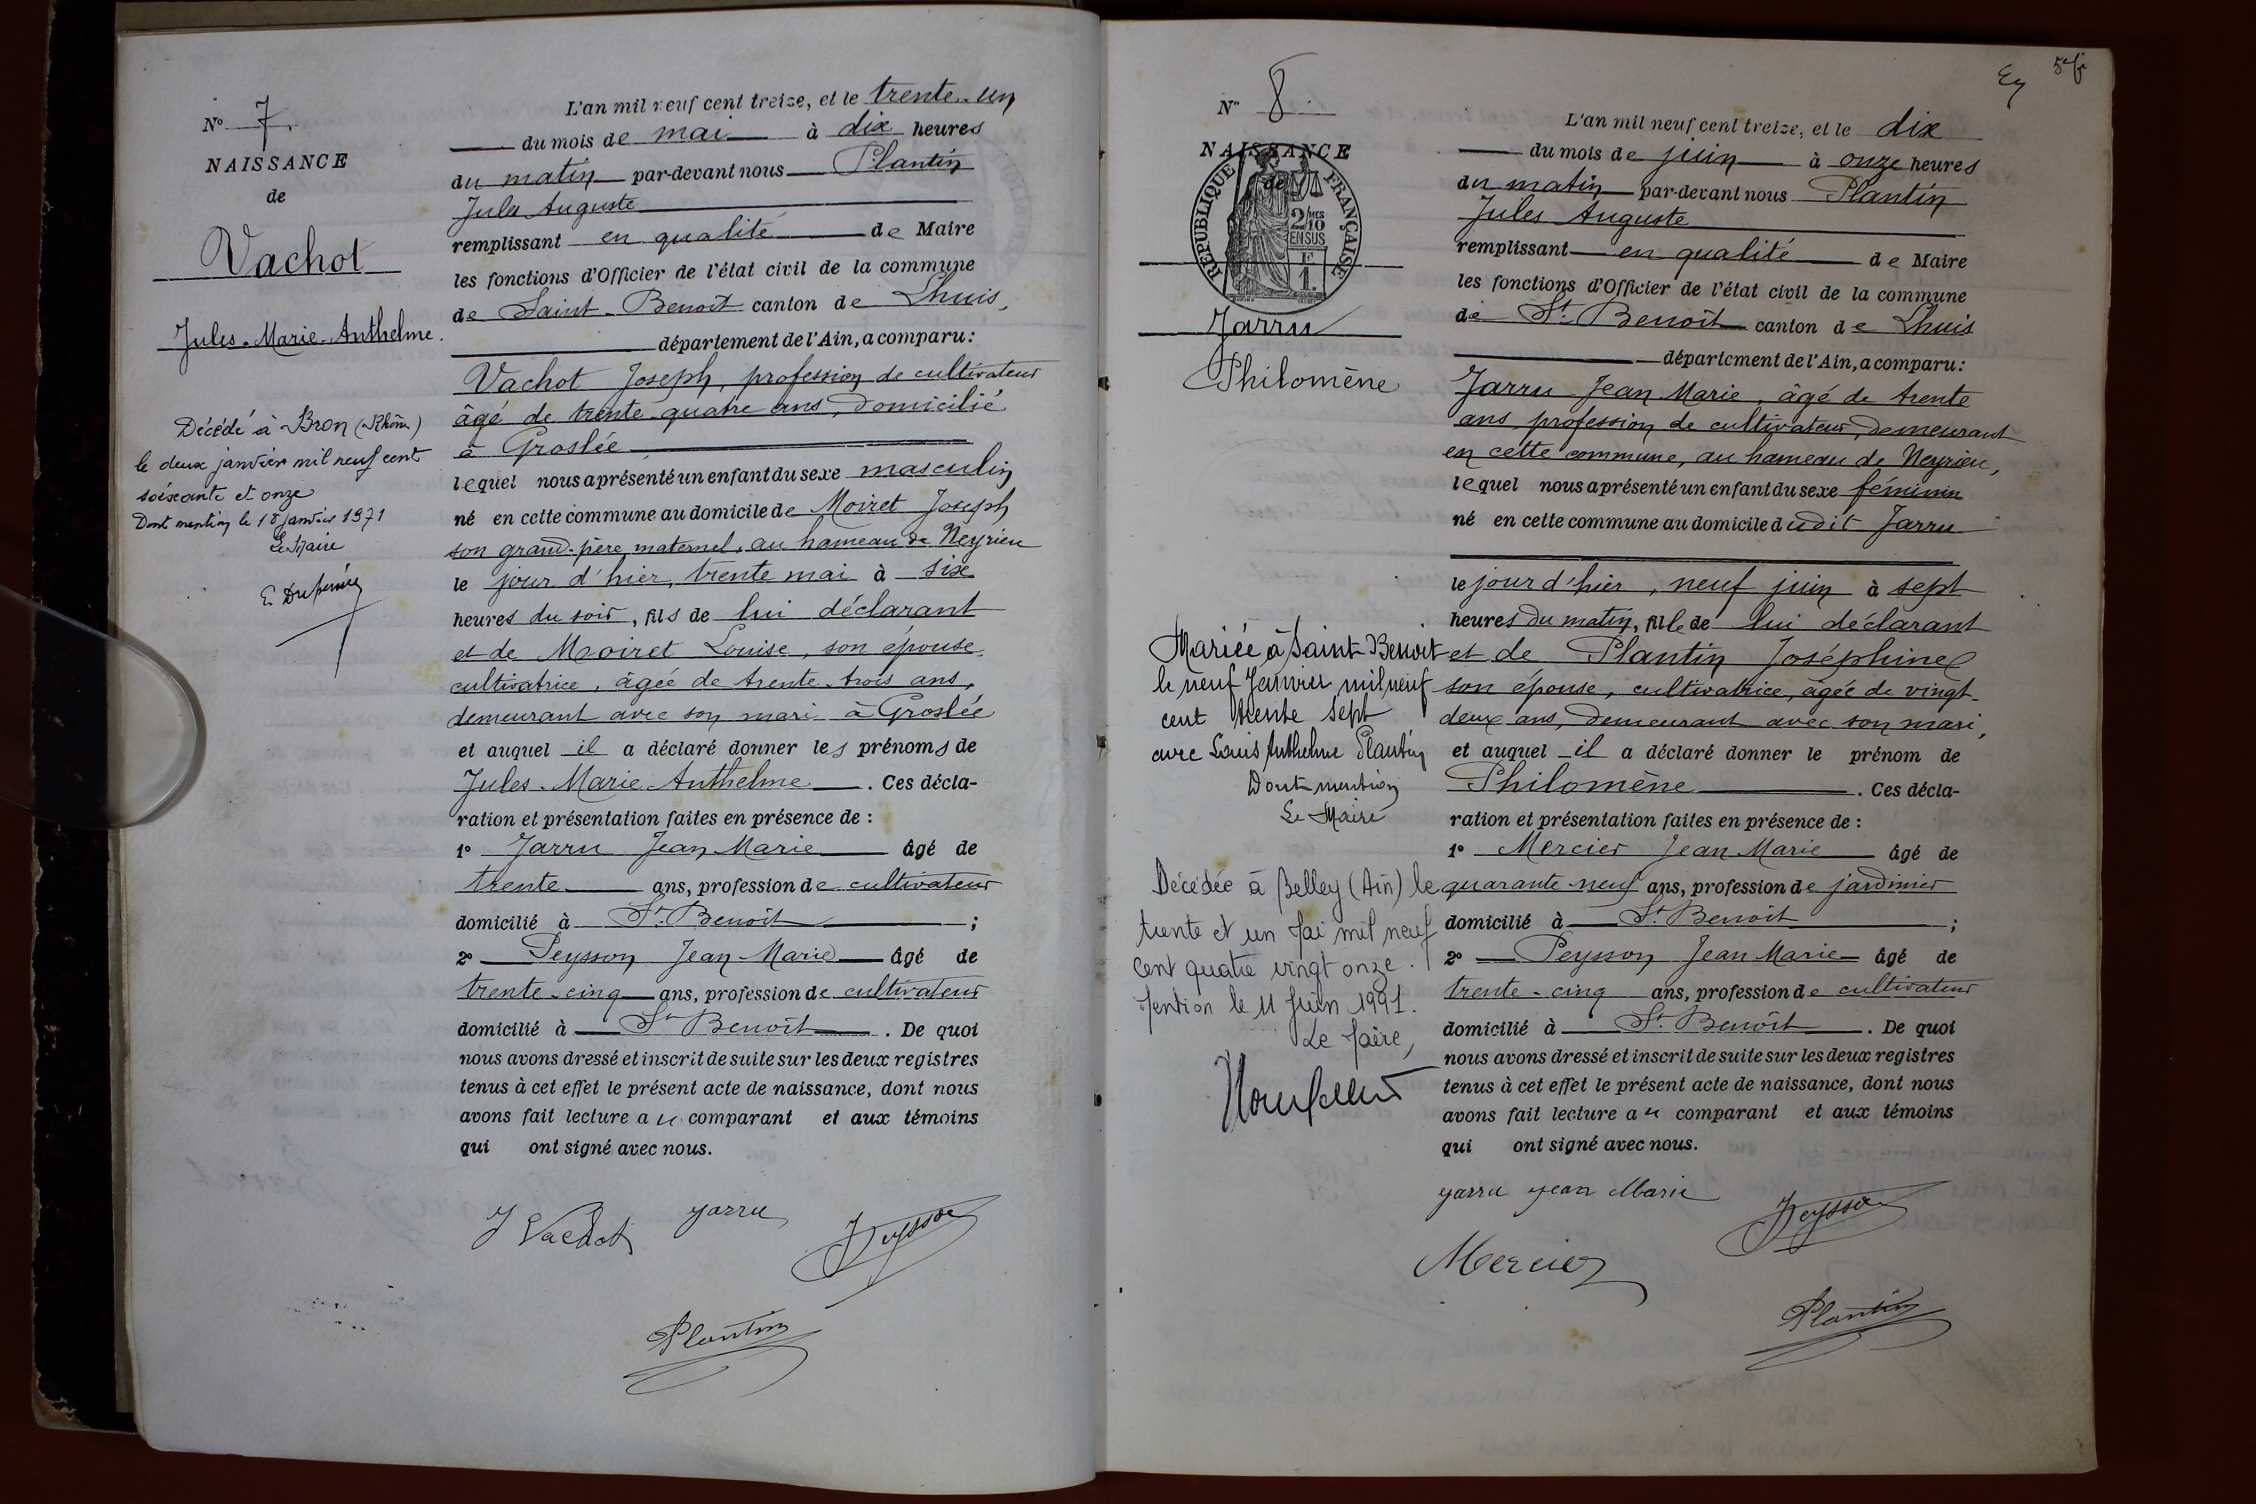 N° 7.
NAISSANCE
de
Vachot
Jules-Marie-Anthelme.
Décédé à Bron (Rhône)
le deux janvier mil neuf cent
soixante et onze
Dont mention le 18 janvier 1971
Le Maire
L'an mil neuf cent treize, et le trente-un
du mois de mai à dix heures
du matin par-devant nous Plantin
Jules Auguste
remplissant en qualité de Maire
les fonctions d'Officier de l'état civil de la commune
de Saint-Benoît canton de Lhuis,
département de l'Ain, a comparu:
Vachot Joseph, profession de cultivateur
âgé de trente-quatre ans, domicilié
à Groslée
lequel nous a présenté un enfant du sexe masculin
né en cette commune au domicile de Moiret Joseph
son grand-père maternel, au hameau de Neyrieu
le jour d'hier, trente mai à six
heures du soir, fils de lui déclarant
et de Moiret Louise, son épouse
cultivatrice, âgée de trente-trois ans,
demeurant avec son mari à Groslée
et auquel il a déclaré donner les prénoms de
Jules-Marie-Anthelme. Ces décla-
ration et présentation faites en présence de :
1° Jarru Jean Marie âgé de
trente ans, profession de cultivateur
domicilié à St. Benoît ;
2° Peysson Jean-Marie âgé de
trente-cinq ans, profession de cultivateur
domicilié à St Benoît. De quoi
nous avons dressé et inscrit de suite sur les deux registres
tenus à cet effet le présent acte de naissance, dont nous
avons fait lecture au comparant et aux témoins
qui ont signé avec nous.
J Vachot Jarru J Peysson
Plantin
5e f
N° 8.
NAISSANCE
de
RÉPUBLIQUE FRANÇAISE
2/10 MES
EN SUS
F
1.
Jarru
Philomène
Mariée à Saint-Benoit
le neuf Janvier mil neuf
cent trente sept
avec Louis Anthelme Plantin
Dont mention
Le Maire
Décédée à Belley (Ain) le
trente et un Mai mil neuf
cent quatre vingt onze.
Mention le 11 Juin 1991.
Le Maire,
L'an mil neuf cent treize, et le dix
du mois de juin à onze heures
du matin par-devant nous Plantin
Jules Auguste
remplissant en qualité de Maire
les fonctions d'Officier de l'état civil de la commune
de St. Benoît canton de Lhuis
département de l'Ain, a comparu:
Jarru Jean Marie, âgé de trente
ans, profession de cultivateur, demeurant
en cette commune, au hameau de Neyrieu,
lequel nous a présenté un enfant du sexe féminin
né en cette commune au domicile dudit Jarru
le jour d'hier, neuf juin à sept
heures du matin, fille de lui déclarant
et de Plantin Joséphine
son épouse, cultivatrice, âgée de vingt-
deux ans, demeurant avec son mari,
et auquel il a déclaré donner le prénom de
Philomène. Ces décla-
ration et présentation faites en présence de :
1° Mercier Jean Marie âgé de
quarante-neuf ans, profession de jardinier
domicilié à St. Benoît ;
2° Peysson Jean Marie âgé de
trente-cinq ans, profession de cultivateur
domicilié à St. Benoît. De quoi
nous avons dressé et inscrit de suite sur les deux registres
tenus à cet effet le présent acte de naissance, dont nous
avons fait lecture au comparant et aux témoins
qui ont signé avec nous.
Jarru Jean Marie J Peysson
Mercier
Plantin